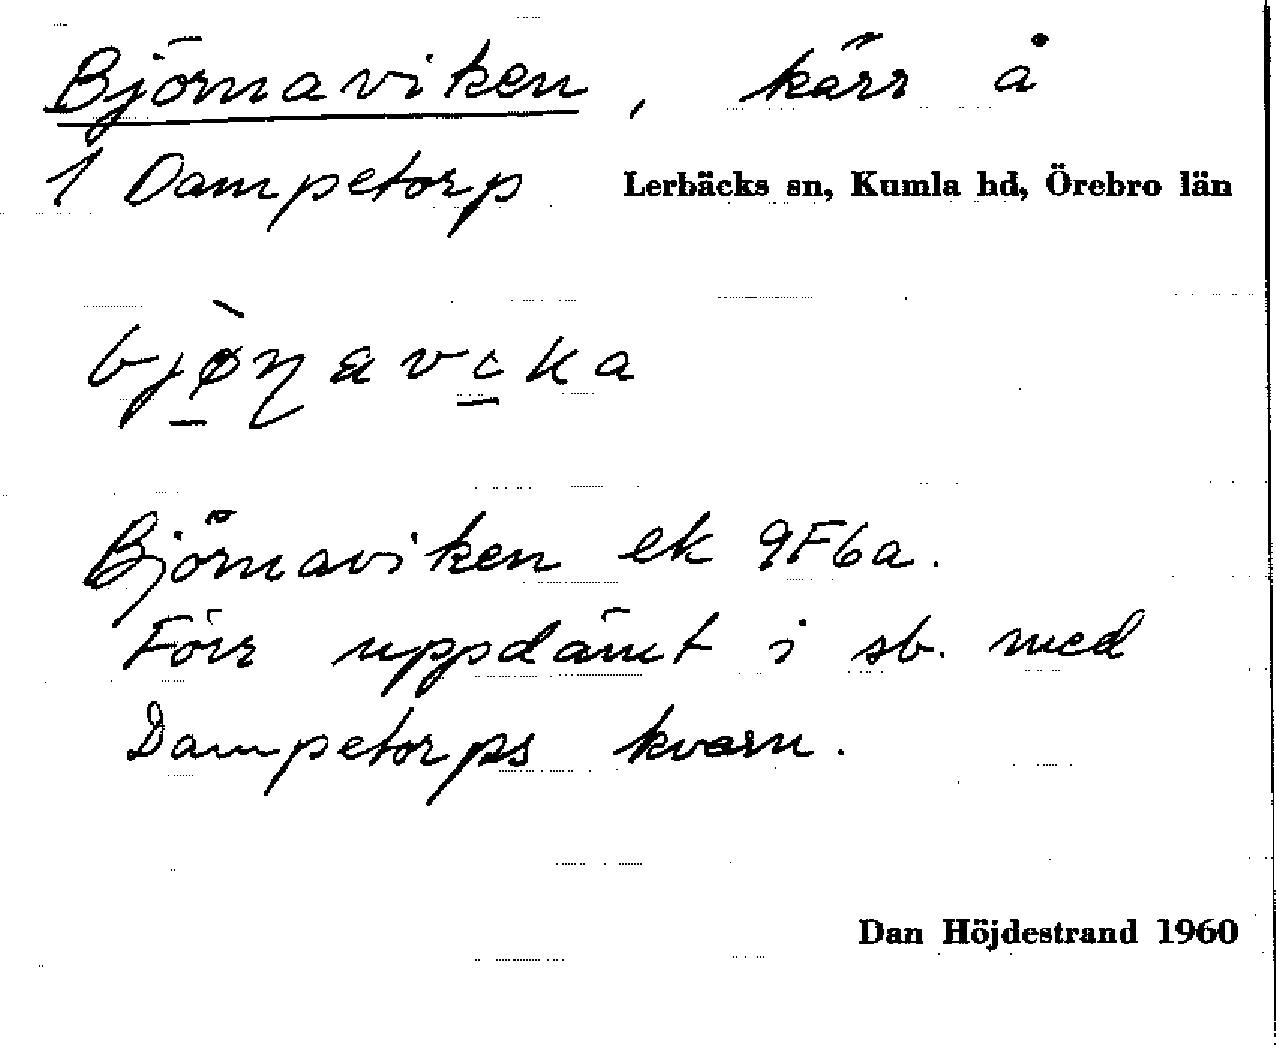 Björnaviken, kärr å
1 Dampetorp Lerbäcks sn, Kumla hd, Örebro län
bjø̲̀ɳavi̲ka
Björnaviken ek 9F6a.
Förr uppdämt i sb. med
Dampetorps kvarn.
Dan Höjdestrand 1960